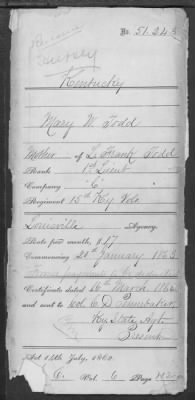 No. 51.243
Kentucky
Mary W. Todd
Mother of L. Frank Todd
Rank 1st Lieut
Company "C"
Regiment 15th Ky Vols
Louisville Agency.
Rate per month, $17
Commencing 21st January 1865
Certificate dated 16th March 1865
and sent to Col C D Pennebaker
Ky State Agt
Act 14th July, 1862
Vol. 6 Page